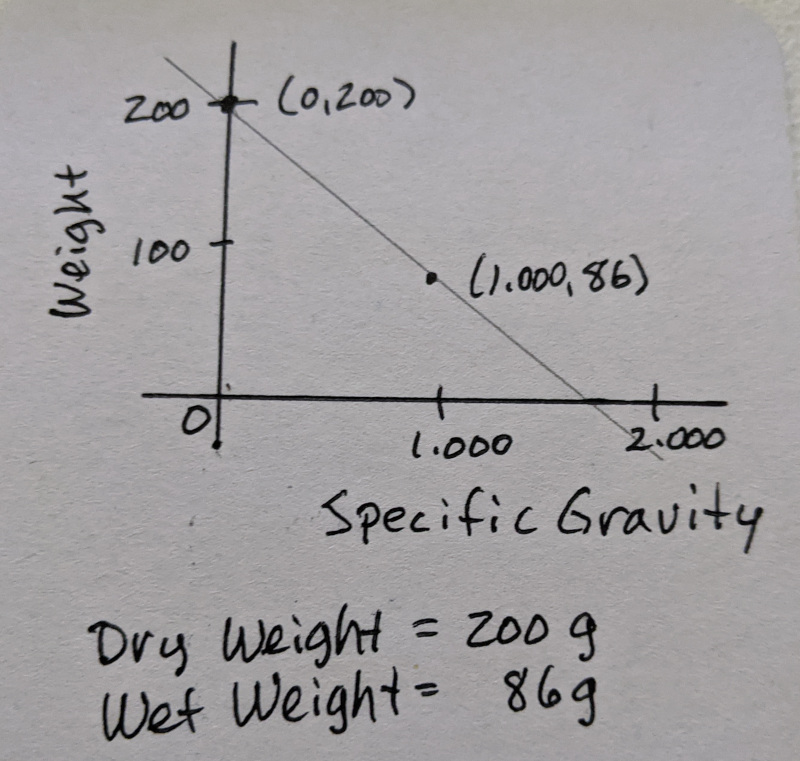 200 (0,200)
Weight
100
(1.000, 86)
0
1.000 2.000
Specific Gravity
Dry Weight = 200 g
Wet Weight = 86g